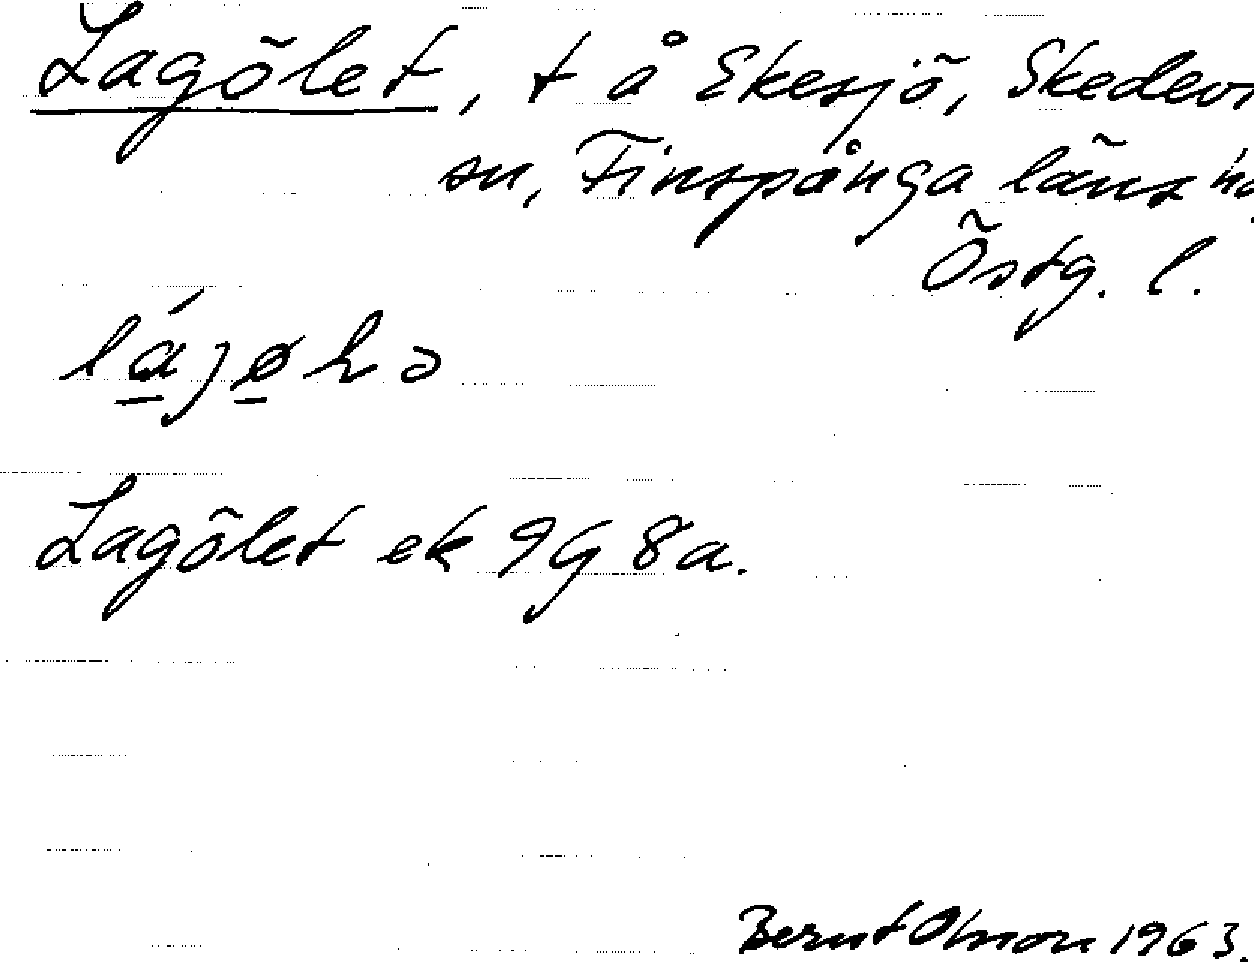 Lagölet, t å Ekesjö, Skedevi
sn, Finspånga läns hd
Östg. l.
Lagölet ek 9G 8a.
Bernt Olmon 1963.